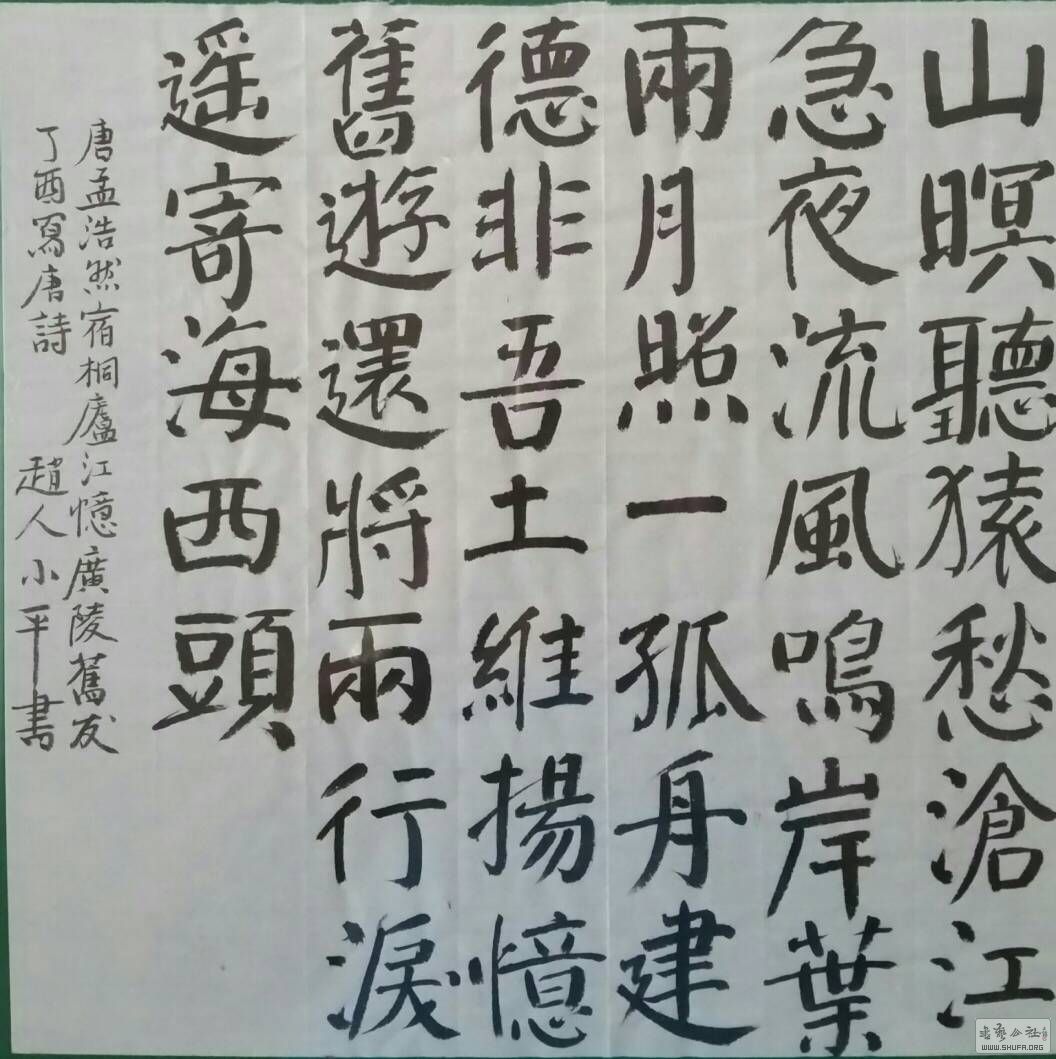 山暝聽猿愁滄江
急夜流風鳴岸葉
兩月照一孤舟建
德非吾土維揚憶
舊遊還將兩行淚
遥寄海西頭
唐孟浩然宿桐廬江憶廣陵舊友
丁酉寫唐詩 趙人小平書
WWW.SHUFA.ORG